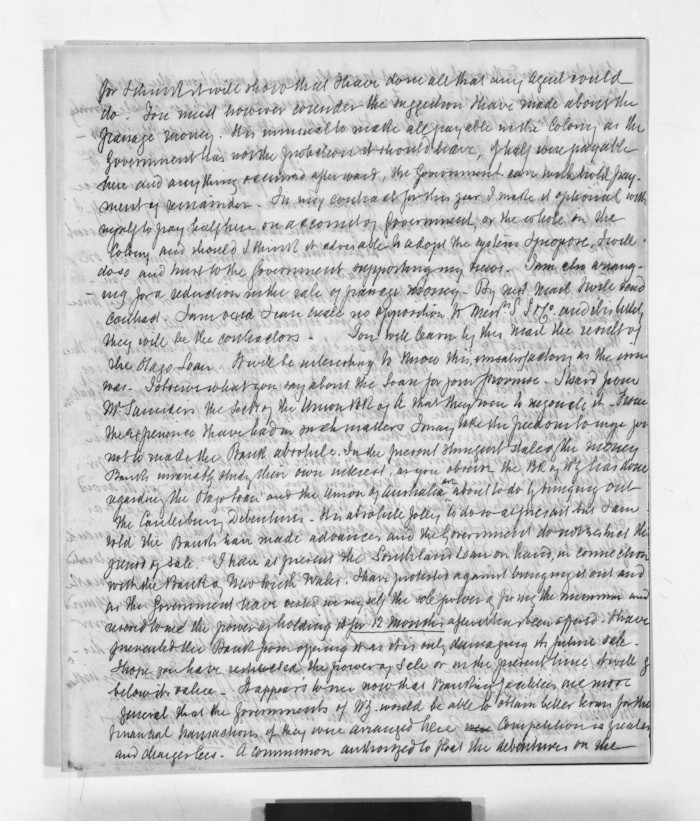 for I think it will show that I have done all that any Agent could
do. You must however consider the suggestion I have made about the
passage money. It is unusual to make all payable in the Colony as the
Government has not the protection it should have, if half were payable
here and anything occurred afterward, the Government can withhold pay-
ment of remainder. In my contract for this year I make it optional with
myself to pay half here on account of Government, or the whole in the
Colony and should I think it advisable to adopt the system I propose, I will
do so and trust to the Government supporting my views. I am also arrang-
ing for a reduction in the rate of passage money. By next Mail I will send
contract. I am afraid I can create no opposition to Messrs S. S & Co. and
they will be the contractors. You will learn by this Mail the result of
the Otago Loan. It will be interesting to know this, unsatisfactory as the
was. I observe what you say about the Loan for your Province. I heard from
Mr Saunders the Secty of the Union Bk of A that they were to negociate it. From
the experience I have had in such matters I may take the freedom to urge you
not to make the Bank absolute. In the present stringent state of the money
Banks invariably study their own interest, as you observe the Bk of NZ has done
regarding the Otago Loan and the Union of Australia are about to do by bringing out
the Canterbury Debentures. It is absolute folly to do so at present but I am
told the Banks have made advances and the Government do not restrict the
period of sale. I have at present the Southland Loan on hand, in connection
with the Bank of New South Wales. I have protested against bringing it out and
as the Government have vested in myself the sole power of fixing the minimum and
reserved to me the power of holding it for 12 months after it has been offered. I have
prevented the Bank from offering it as it is only damaging its future sale.
I hope you have restricted the power of Sale or in the present time it will go
below its value. It appears to me now that Banking facilities are more
general that the Governments of NZ would be able to obtain better terms for the
financial transactions if they were arranged here Competition is greater
and charges less. A commission authorized to float the debentures on the